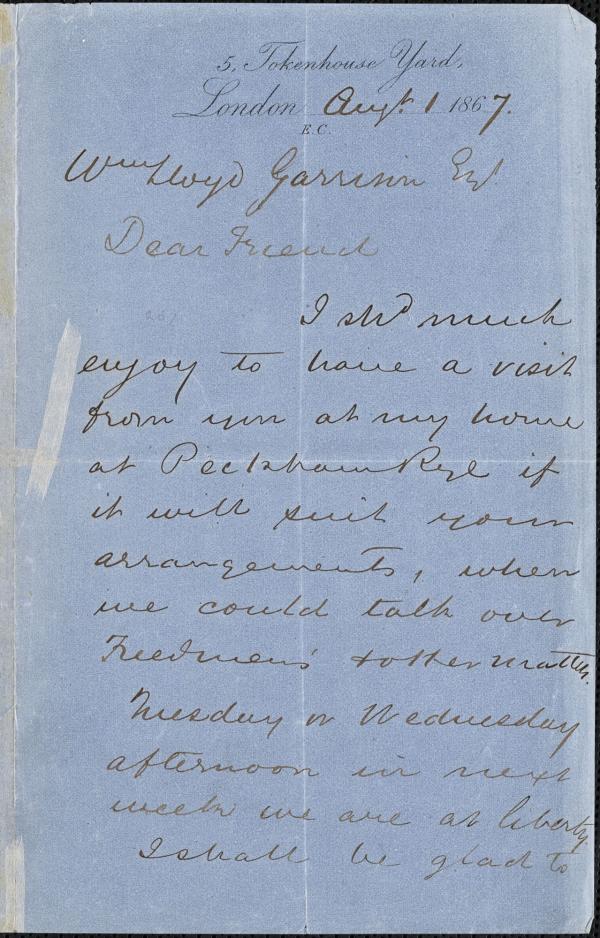 5, Tokenhouse Yard,
London Augt. 1 1867.
E.C.
Wm Lloyd Garrison Esq.
Dear Friend
I shd much
enjoy to have a visit
from you at my home
at Peckham Rye if
it will suit your
arrangements, when
we could talk over
Freedmen's & other matters.
Tuesday or Wednesday
afternoon in next
week we are at liberty.
I shall be glad to